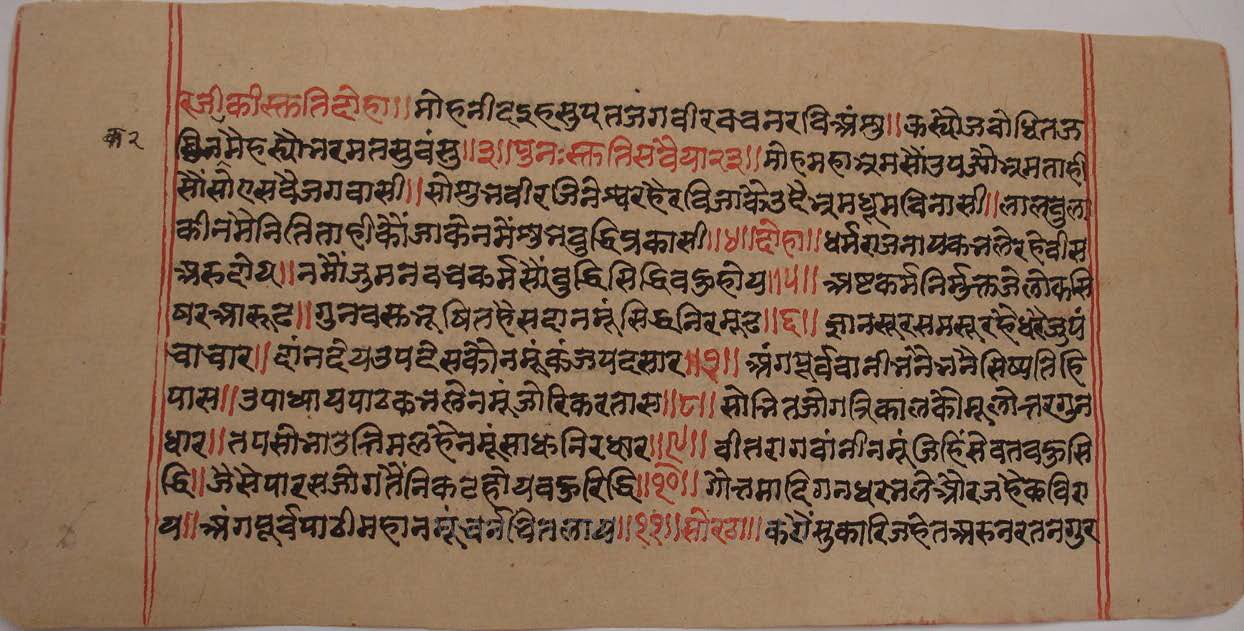 रजीकीस्क्तति दोहा॥ मोहनीदइहसुपतजगवीरवचनरविअंसु॥ कह्योजवोधितऊ
कर
घिनमैहह्यौभरमतसुवंसु॥३॥ पुनःस्क्ततिसवैया २३॥ मोहमहाभ्रमसौंउपज्यौभ्रमताही
सौंसोएसवैजगवासी॥ सोसुनवीरजिनेश्वरहैरविजाकेउदैभ्रमधूमविनासी॥ लालवुला
कीनमैनितिताहीकौंजाकेनमैंशुभवुद्धिप्रकासी॥४॥ दोहा॥ धर्मराजनायकभलेरहेवीस
अरुदोय॥ नमौंजुमनवचकर्मसौंवुद्धिसिद्धिवहुहोय॥५॥ अष्टकर्मनिर्मुक्तजेलोकसि
षरआरूढ॥ गुनवस्क्तभूषितहैसदानमूंसिद्धनिरमूढ॥६॥ ज्ञानसूरसमसूरहैधरैजुपं
चाचार॥ दांनदेयउपदेसकौनमूंकंजपदसार॥७॥ अंगपूर्ववानीभंनेभनैसिष्यतिहि
पास॥ उपाध्यायपाठकभलेनमूंजोरिकरतास॥८॥ सोभितजोगत्रिकालकौमूलोत्तरगुन
धार॥ तपसीभाउत्तिमलहेनमूंसाधनिरधार॥९॥ वीतरागवांनीनमूंजिहिंसेवतवहुसि
द्धि॥ जैसेपारसजोगतैंनिकटहोयवहुरिद्धि॥१०॥ गौत्तमादिगनधरभलेऔरजहेकविरा
य॥ अंगपूर्वपाठीमहानमूंचर्नचितलाय॥११॥ सोरठा॥ करौंसुकारिजहेतअरुनरतनगुर